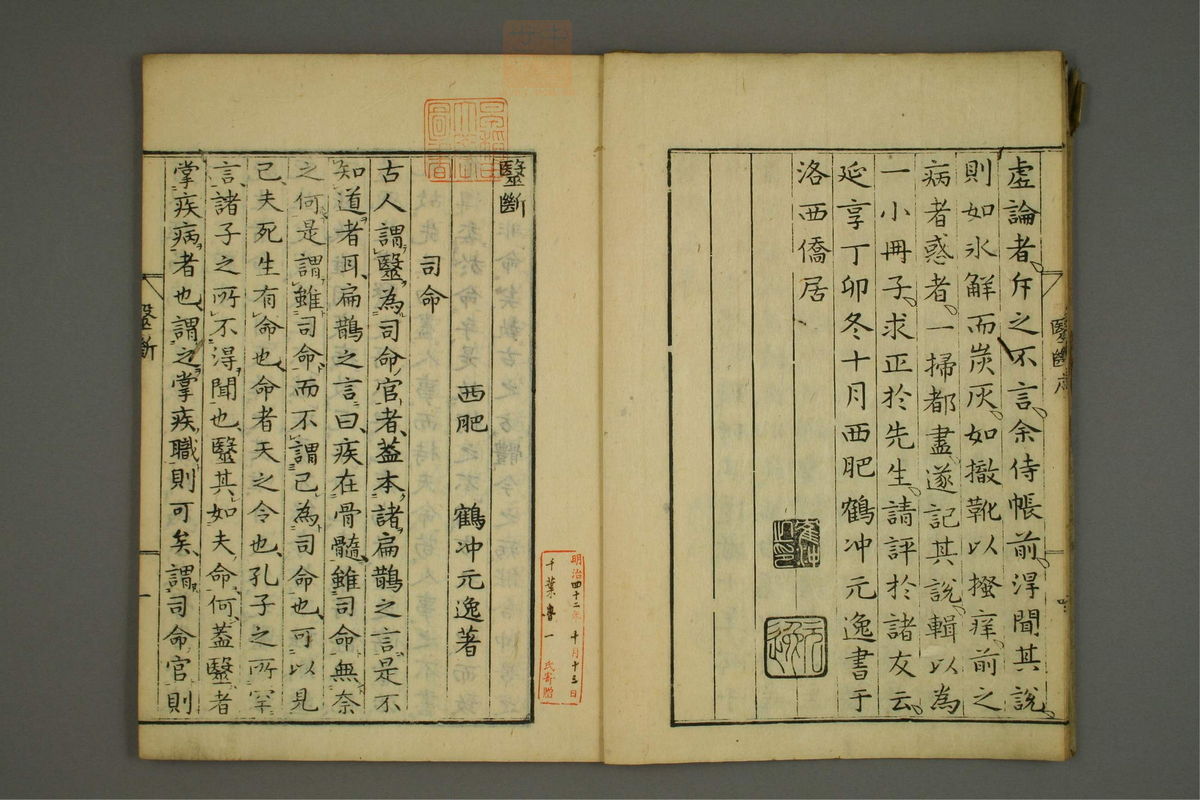 虛論者斥之不言余侍帳前淂聞其説
則如氷鮮而炭灰如撤靴以搔痒前之
病者惑者一掃都盡遂記其説輯以為
一小冊子求正於先生請評於諸友云
延享丁卯冬十月西肥鶴冲元逸書于
洛西僑居
毉斷
司命
西肥 鶴冲元逸著
古人謂毉為司命官者葢本諸扁鵲之言是不
知道者耳扁鵲之言曰疾在骨髓雖司命無奈
之何是謂雖司命而不謂己為司命也可以見
己夫死生有命也命者天之令也孔子之所罕
言諸子之所不淂聞也毉其如夫命何葢毉者
掌疾病者也謂之掌疾職則可矣謂司命官則
毉斷
一
明治四十二年十月十三日
千葉
一氏寄贈